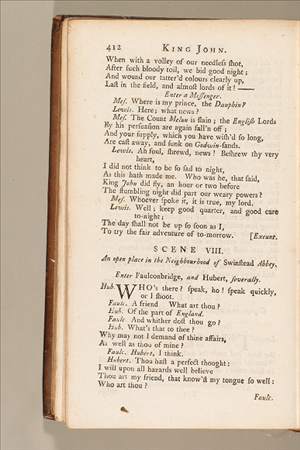 412 KING JOHN.
When with a volley of our needleſs ſhot,
After ſuch bloody toil, we bid good night;
And wound our tatter'd colours clearly up,
Laſt in the field, and almoſt lords of it! ——
Enter a Meſſenger.
Meſ. Where is my prince, the Dauphin?
Lewis. Here; what news?
Meſ. The Count Melun is ſlain; the Engliſh Lords
By his perſuaſion are again fall'n off;
And your ſupply, which you have wiſh'd ſo long,
Are caſt away, and ſunk on Godwin-ſands.
Lewis. Ah foul, ſhrewd, news! Beſhrew thy very
heart,
I did not think to be ſo ſad to night,
As this hath made me. Who was he, that ſaid,
King John did fly, an hour or two before
The ſtumbling night did part our weary powers?
Meſ. Whoever ſpoke it, it is true, my lord.
Lewis. Well; keep good quarter, and good care
to-night;
The day ſhall not be up ſo ſoon as I,
To try the fair adventure of to-morrow. [Exeunt.
SCENE VIII.
An open place in the Neighbourhood of Swinſtead Abbey.
Enter Faulconbridge, and Hubert, ſeverally.
Hub. WHO's there? ſpeak, ho! ſpeak quickly,
or I ſhoot.
Faulc. A friend What art thou?
Hub. Of the part of England.
Faulc And whither doſt thou go?
Hub. What's that to thee?
Why may not I demand of thine affairs,
As well as thou of mine?
Faulc. Hubert, I think.
Hubert. Thou haſt a perfect thought:
I will upon all hazards well believe
Thou art my friend, that know'ſt my tongue ſo well:
Who art thou?
Faulc.